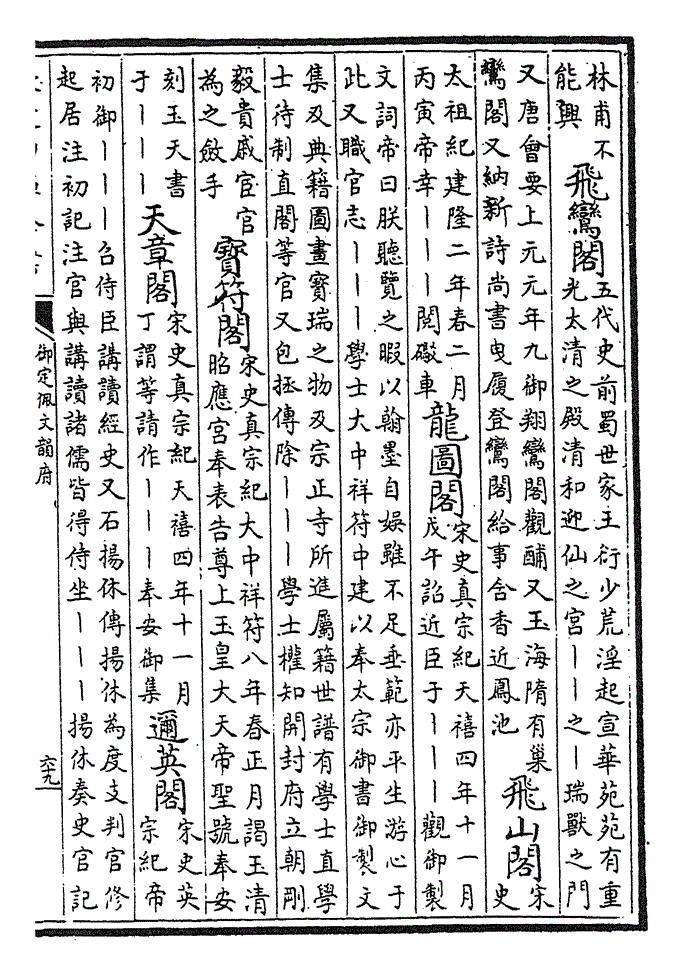 林甫不
能興
飛鸞閣
五代史前蜀世家王衍少荒淫起宣華苑苑有重
光太清之殿清和迎仙之宮丨丨之丨瑞獸之門
又唐會要上元元年九御翔鸞閣觀酺又玉海隋有巢
鸞閣又納新詩尚書曳履登鸞閣給事含香近鳳池
飛山閣
宋
史
太祖紀建隆二年春二月
丙寅帝幸丨丨丨閱礮車
龍圖閣
宋史真宗紀天禧四年十一月
戊午詔近臣于丨丨丨觀御製
文詞帝曰朕聽覽之暇以翰墨自娛雖不足垂範亦平生游心于
此又職官志丨丨丨學士大中祥符中建以奉太宗御書御製文
集及典籍圖畫寶瑞之物及宗正寺所進屬籍世譜有學士直學
士待制直閣等官又包拯傳除丨丨丨學士權知開封府立朝剛
毅貴戚宦官
為之斂手
寶符閣
宋史真宗紀大中祥符八年春正月謁玉清
昭應宮奉表告尊上玉皇大天帝聖號奉安
刻玉天書
于丨丨丨
天章閣
宋史真宗紀天禧四年十一月
丁謂等請作丨丨丨奉安御集
邇英閣
宋史英
宗紀帝
初御丨丨丨召侍臣講讀經史又石揚休傳揚休為度支判官修
起居注初記注官與講讀諸儒皆得侍坐丨丨丨揚休奏史官記
御定佩文韻府
六九